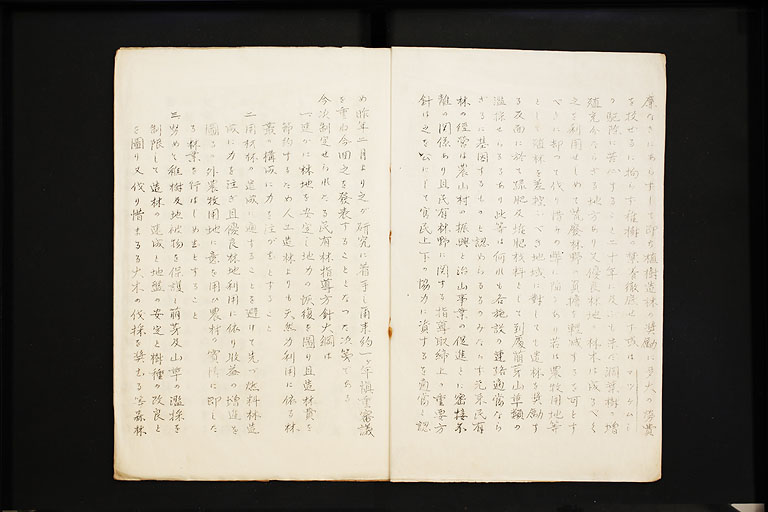 廉なきにあらずして即ち植樹造林の奨励に莫大の努費
を投ぜるに拘らず種樹の愛養徹底せず或はマツケムシ
の駆除に苦心すること二十年に及ぶも未だ濶葉樹の増
殖完からざる地方あり又優良林地の林木は成るべく
之を利用せしめて荒廃林野の負擔を軽減するを可とす
べきに却つて伐り惜みの弊に陥るあり若は農牧用地等
として殖林を差控ふべき地域に對してまで造林を奨励す
る反面に於て緑肥及堆肥材料として到る處萌芽山草類の
濫採せらるるあり此等は何れも各施設の連絡適當なら
ざるに基因するものと認めらるるのみならず元来民有
林の經營は農山村の振興と治山事業の促進とに密接不
離の関係あり且民有林野に関する指導取締上の重要方
針は之を公にして官民上下の協力に資するを適當と認
め昨年二月より之が研究に着手し爾来約一ケ年慎重審議
を重ね今回之を發表することとなつた次第である
今次制定せられたる民有林指導方針大綱は
一、速かに林地を安定し地力の恢復を圖り且造林費を
節約するため人工造林よりも天然力利用に依る林
叢の構成に力を注がむとすること
二、用材林の造成に過ることを避けて先づ燃料林造
成に力を注ぎ且優良林地利用に依り收益の増進を
圖るの外農牧用地に意を用ひ農村の實情に即した
る林業を行はしめむとすること
三、努めて稚樹及地被物を保護し萌芽及山草の濫採を
制限して造林の造成と地盤の安定と樹種の改良と
を圖り又伐り惜まるる大木の伐採を奨むる等森林